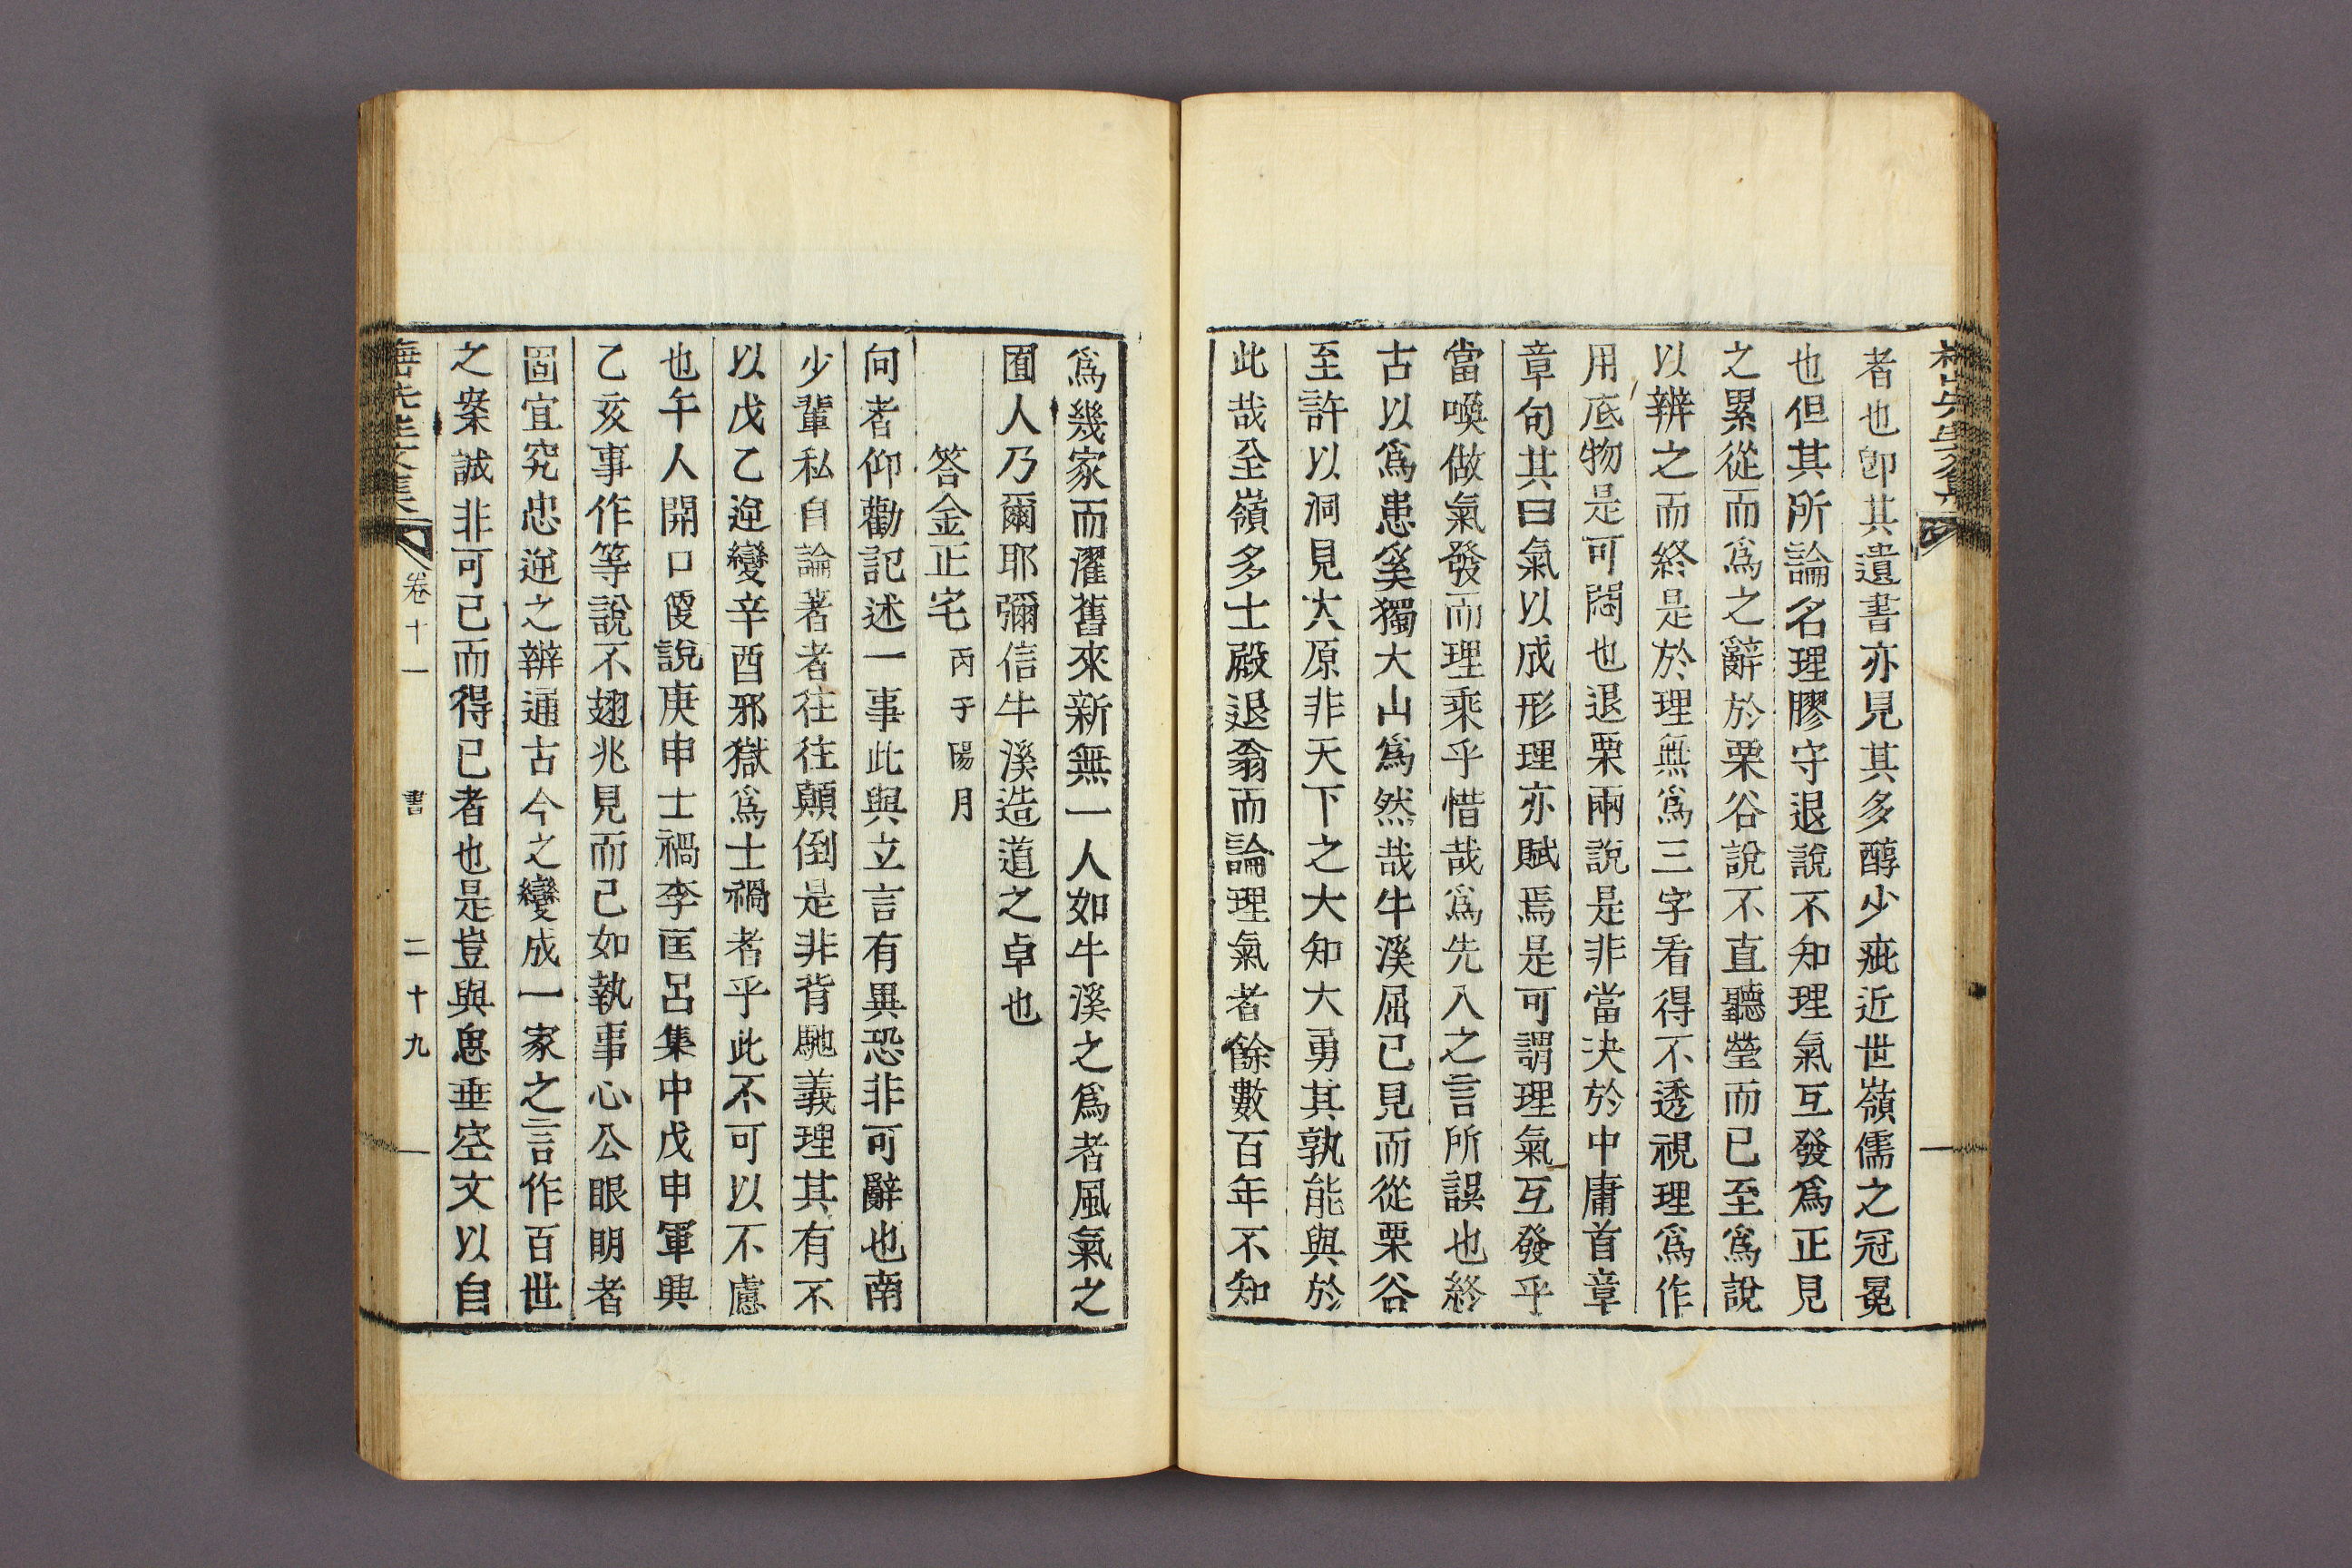 者也卽其遺書亦見其多醇少疵近世嶺儒之冠冕
也但其所論名理膠守退說不知理氣互發爲正見
之累從而爲之辭於栗谷說不直聽瑩而已至爲說
以辨之而終是於理無爲三字看得不透視理爲作
用底物是可悶也退栗兩說是非當決於中庸首章
章句其曰氣以成形理亦賦焉是可謂理氣互發乎
當喚做氣發而理乘乎惜哉爲先入之言所誤也終
古以爲患奚獨大山爲然哉牛溪屈己見而從栗谷
至許以洞見大原非天下之大知大勇其孰能與於
此哉全嶺多士殿退翁而論理氣者餘數百年不知
爲幾家而濯舊來新無一人如牛溪之爲者風氣之
囿人乃爾耶彌信牛溪造道之卓也
答金正宅 丙子陽月
向者仰勸記述一事此與立言有異恐非可辭也南
少輩私自論著者往往顛倒是非背馳義理其有不
以戊乙逆變辛酉邪獄爲士禍者乎此不可以不慮
也午人開口便說庚申士禍李匡呂集中戊申軍興
乙亥事作等說不翅兆見而已如執事心公眼明者
固宜究忠逆之辨通古今之變成一家之言作百世
之案誠非可已而得已者也是豈與思垂空文以自
卷十一 書 二十九